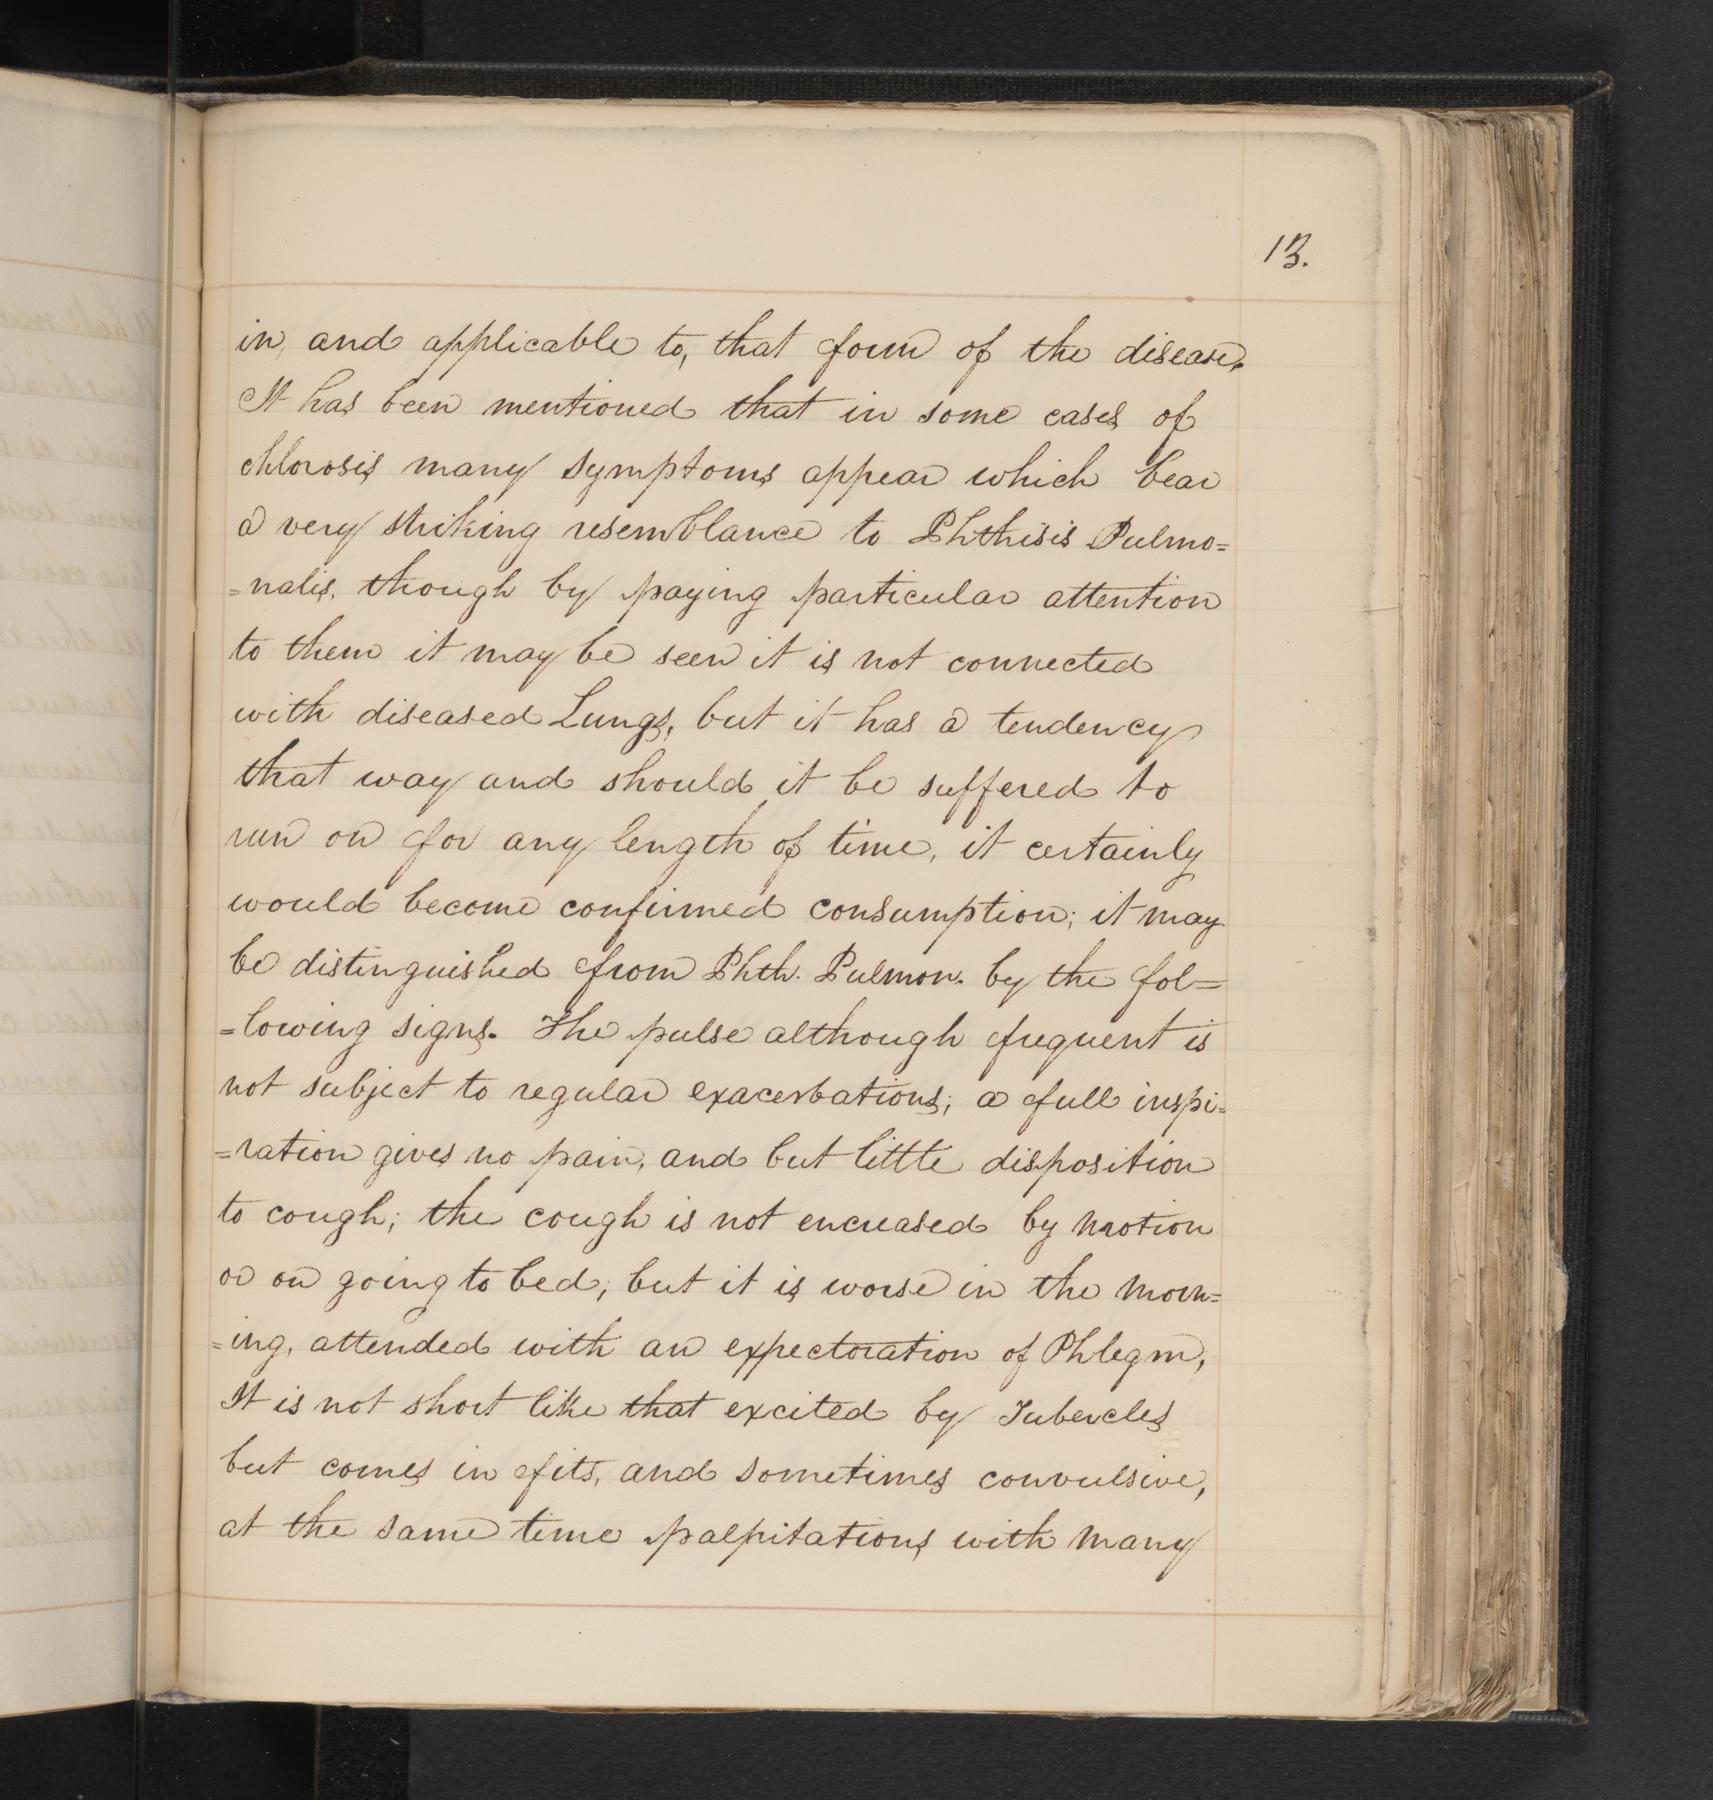 13.
in, and applicable to, that form of the disease.
It has been mentioned that in some cases of
chlorosis many symptoms appear which bear
a very striking resemblance to Phthisis Pulmo=
=nalis, though by paying particular attention
to them it may be seen it is not connected
with diseased Lungs, but it has a tendency
that way and should it be suffered to
run on for any length of time, it certainly
would become confirmed consumption; it may
be distinguished from Phth. Pulmon. by the fol=
=lowing signs. The pulse although frequent is
not subject to regular exacerbations; a full inspi=
=ration gives no pain, and but little disposition
to cough; the cough is not encreased by motion
or on going to bed; but it is worse in the morn=
=ing, attended with an expectoration of Phlegm,
It is not short like that excited by Tubercles
but comes in fits, and sometimes convulsive,
at the same time palpitations with many